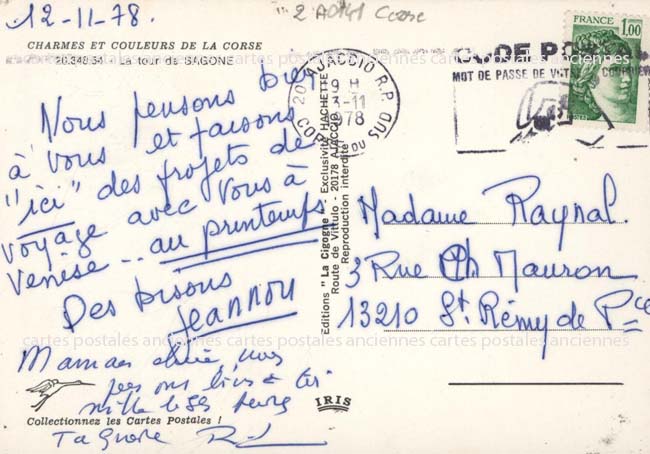 12-11-78.
2 A0141 Corse
CHARMES ET COULEURS DE LA CORSE
20.348.54 - La tour de SAGONE
Nous pensons bien
à vous et faisons
"ici" des projets de
voyage avec vous à
Venise... au printemps
Des bisous
Jeannou
Maman chérie, nous
mille
Collectionnez les Cartes Postales !
Editions "La Cigogne" - Exclusivité HACHETTE
Route de Vittulo - 20178 AJACCIO
Reproduction interdite
IRIS
20 AJACCIO R.P.
9 H
13-11
1978
CORSE DU SUD
CODE POSTAL
MOT DE PASSE DE VOTRE COURRIER
FRANCE
1,00
POSTES
Madame Raynal.
3 Rue Ch. Mauron
13210 St. Rémy de Pce
cartes postales anciennes cartes postales anciennes cartes postales anciennes